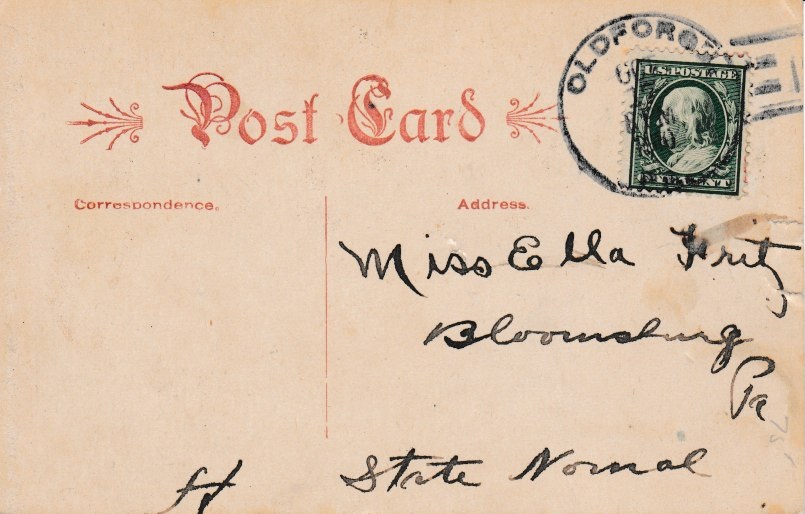 OLD FORGE
U.S. POSTAGE
ONE CENT
Post Card
Correspondence.
Address.
Miss Ella Fritz
Bloomsburg
Pa
State Normal